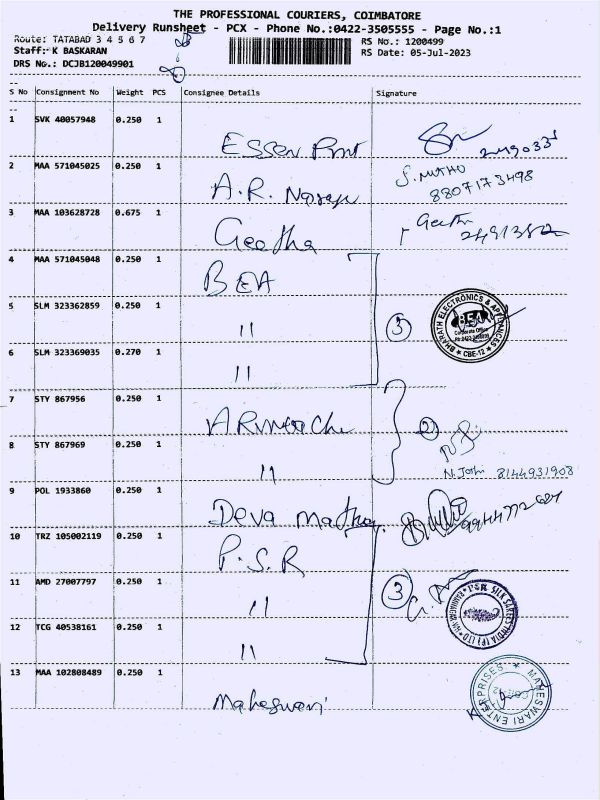 THE PROFESSIONAL COURIERS, COIMBATORE
Delivery Runsheet - PCX - Phone No.:0422-3505555 - Page No.:1
Route: TATABAD 3 4 5 6 7
RS No.: 1200499
Staff: K BASKARAN
RS Date: 05-Jul-2023
DRS No.: DCJB120049901
S No Consignment No Weight PCS Consignee Details Signature
1 SVK 40057948 0.250 1
2 MAA 571045025 0.250 1 A.R.
S. MUTHU
8807173498
3 MAA 103628728 0.675 1 Geetha
Geetha
4 MAA 571045048 0.250 1 BEA
5 SLM 323362859 0.250 1 "
3
BHARATH ELECTRONICS & APPLIANCES
BEA
Corporate Office
* CBE-12 *
6 SLM 323369035 0.270 1 "
7 STY 867956 0.250 1
2
8 STY 867969 0.250 1 "
8144931908
9 POL 1933860 0.250 1 Deva
10 TRZ 105002119 0.250 1 P.S.R
11 AMD 27007797 0.250 1 "
3
12 TCG 40538161 0.250 1 "
13 MAA 102808489 0.250 1 Maheswari
MAHESWARI ENTERPRISES